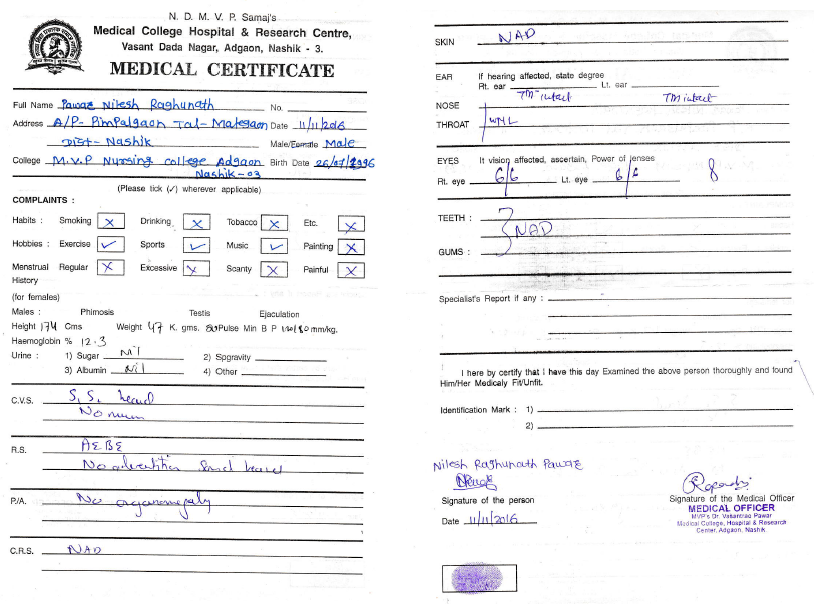 N. D. M. V. P. Samaj's
Medical College Hospital & Research Centre,
Vasant Dada Nagar, Adgaon, Nashik - 3.
MEDICAL CERTIFICATE
Full Name Pawar Nilesh Raghunath No.
Address A/P- Pimpalgaon Tal- Malegaon Date 11/11/2016
Dist- Nashik Male/Female Male
College M.V.P Nursing college Adgaon Birth Date 26/07/1996
Nashik-03
(Please tick (✓) wherever applicable)
COMPLAINTS :
Habits : Smoking X Drinking X Tobacco X Etc. X
Hobbies : Exercise ✓ Sports ✓ Music ✓ Painting X
Menstrual Regular X Excessive X Scanty X Painful X
History
(for females)
Males : Phimosis Testis Ejaculation
Height 174 Cms Weight 47 K. gms. 80 Pulse Min B P 120/80 mm/kg.
Haemoglobin % 12.3
Urine : 1) Sugar Nil 2) Spgravity
3) Albumin Nil 4) Other
C.V.S. S, S, heard
No mum
R.S. AEBE
No adventitious sound heard
P/A. No organomegaly
C.R.S. NAD
SKIN NAD
EAR If hearing affected, state degree
Rt. ear TM intact Lt. ear TM intact
NOSE
THROAT WNL
EYES It vision affected, ascertain, Power of lenses
Rt. eye 6/6 Lt. eye 6/6
TEETH :
NAD
GUMS :
Specialist's Report if any :
I here by certify that I have this day Examined the above person thoroughly and found
Him/Her Medicaly Fit/Unfit.
Identification Mark : 1)
2)
Nilesh Raghunath Pawar
Signature of the person
Date 11/11/2016
Signature of the Medical Officer
MEDICAL OFFICER
MVP's Dr. Vasantrao Pawar
Medical College, Hospital & Research
Center, Adgaon, Nashik